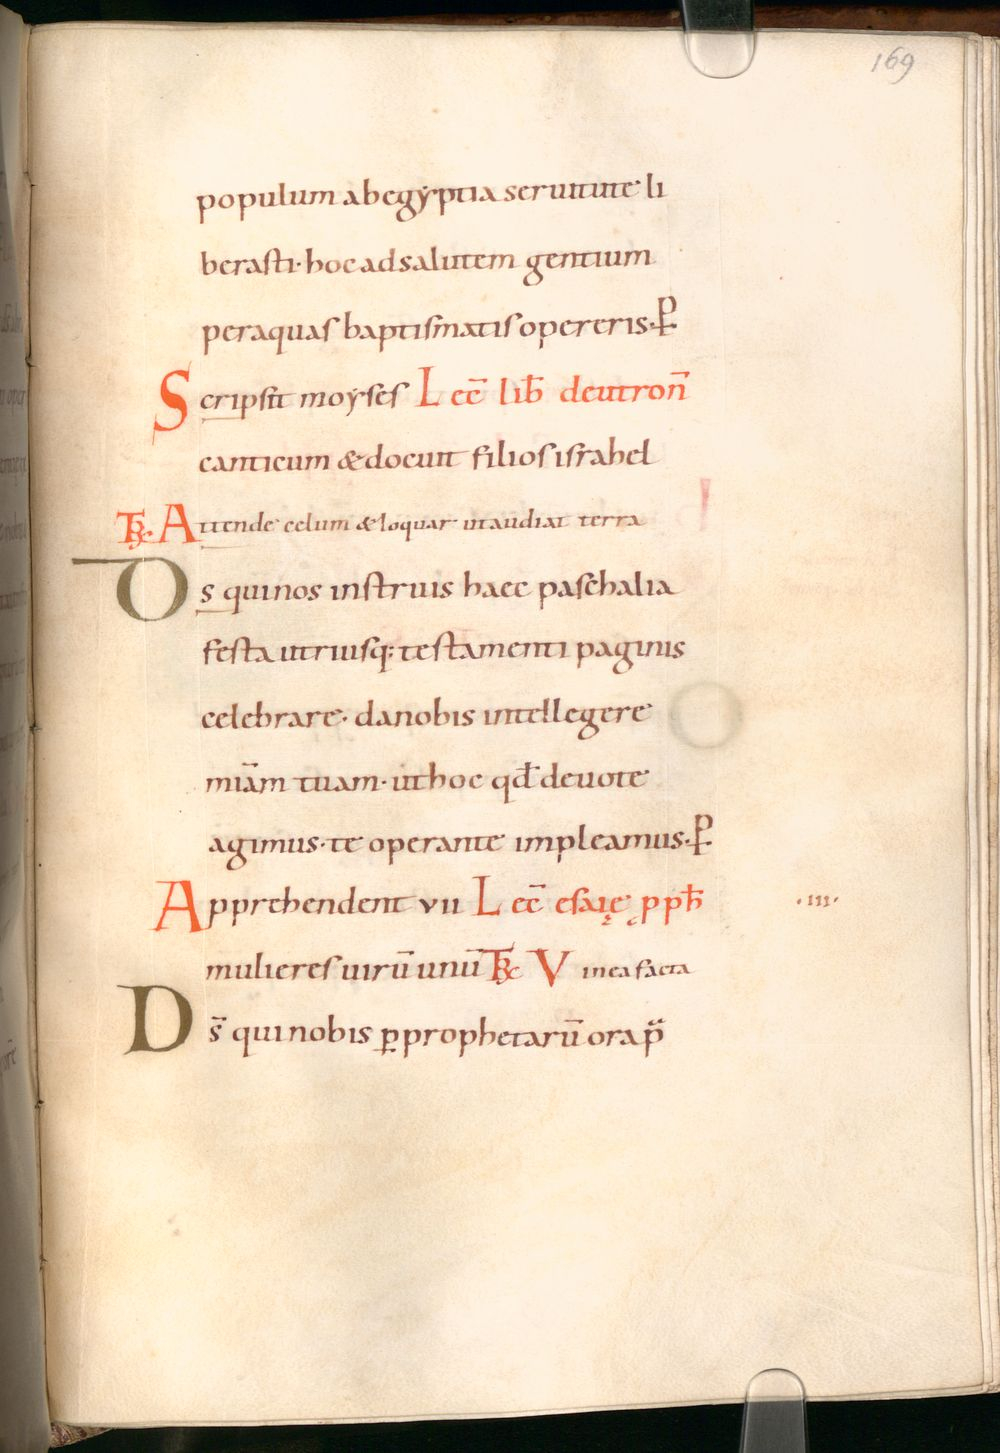 169
populum ab egẏptia seruitute li
berasti· hoc ad salutem gentium
per aquas baptismatis opereris· P̱
Scripsit moẏses Lec̄ lib̄ deutron̄
canticum & docuit filios isr̄ahel
Attende celum & loquar ut audiat terra
Ds qui nos instruis haec paschalia
festa utriusq: testamenti paginis
celebrare· da nobis intellegere
miām tuam· ut hoc qd̄ deuote
agimus· te operante impleamus· P̱
Apprehendent vii Lec̄ esaię pph̄
·III·
mulieres uirū unū Tꝶc Vinea facta
Ds̄ qui nobis ꝑ prophetarū ora p̄